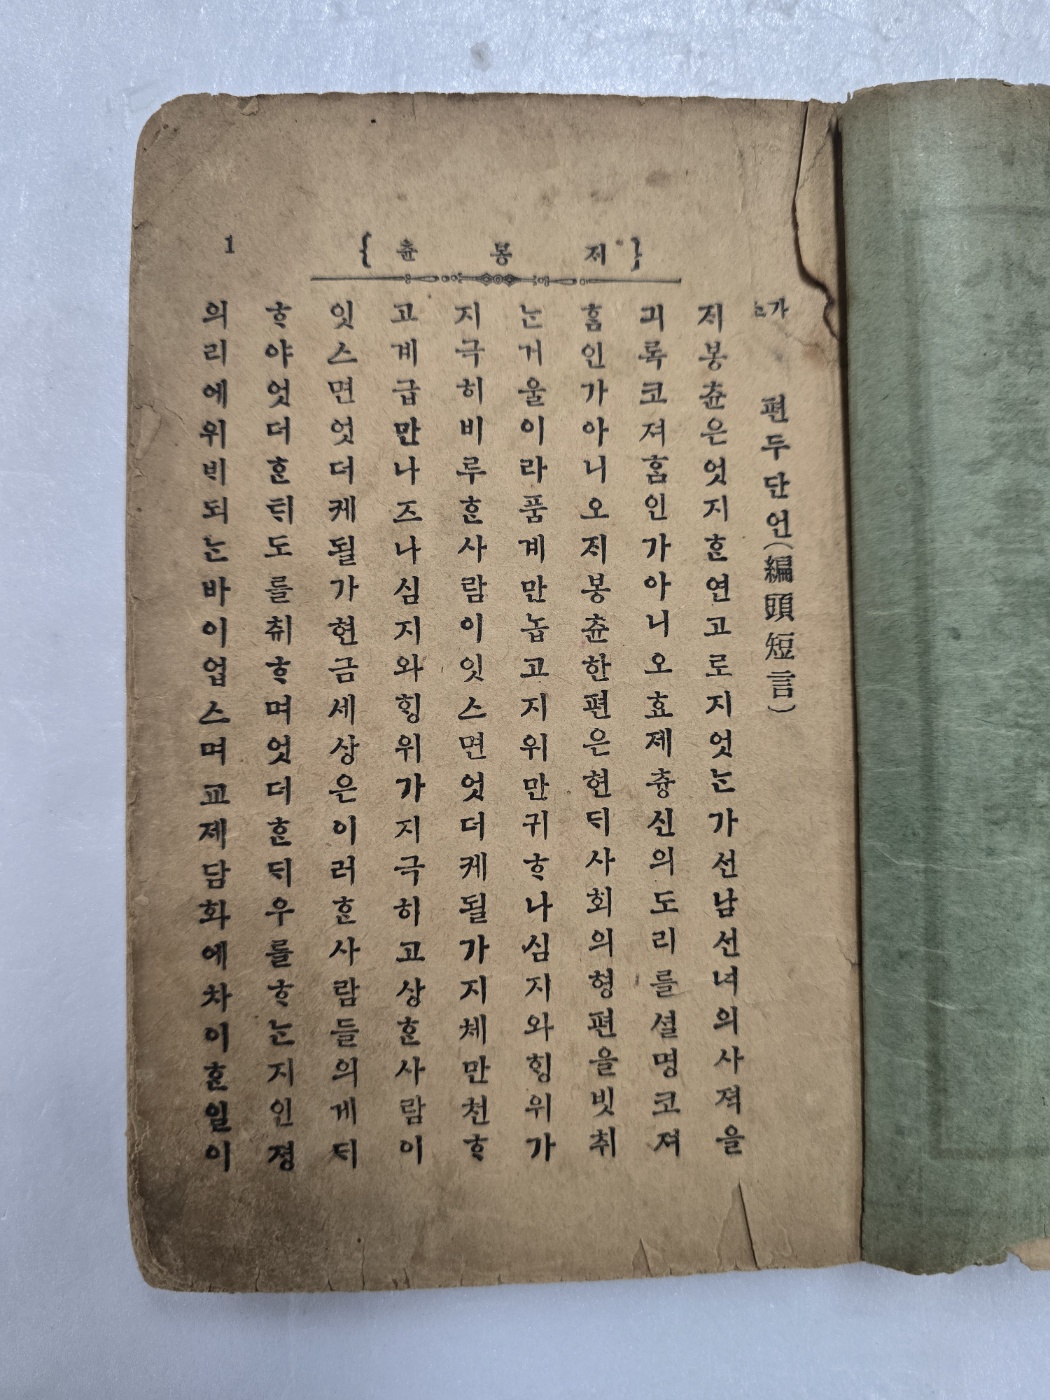 {ᄌᆡ봉츈} 1
편두단언(編頭短言)
ᄌᆡ봉츈은엇지ᄒᆞᆫ연고로지엇ᄂᆞᆫ가선남선녀의사젹을
긔록코져ᄒᆞᆷ인가아니오효제츙신의도리를설명코져
ᄒᆞᆷ인가아니오ᄌᆡ봉츈한편은현ᄃᆡ사회의형편을빗취
ᄂᆞᆫ거울이라품계만놉고지위만귀ᄒᆞ나심지와ᄒᆡᆼ위가
지극히비루ᄒᆞᆫ사람이잇스면엇더케될가지체만천ᄒᆞ
고계급만나즈나심지와ᄒᆡᆼ위가지극히고상ᄒᆞᆫ사람이
잇스면엇더케될가현금세상은이러ᄒᆞᆫ사람들의게ᄃᆡ
ᄒᆞ야엇더ᄒᆞᆫᄐᆡ도를취ᄒᆞ며엇더ᄒᆞᆫᄃᆡ우를ᄒᆞᄂᆞᆫ지인졍
의리에위ᄇᆡ되ᄂᆞᆫ바이업스며교제담화에차이ᄒᆞᆫ일이